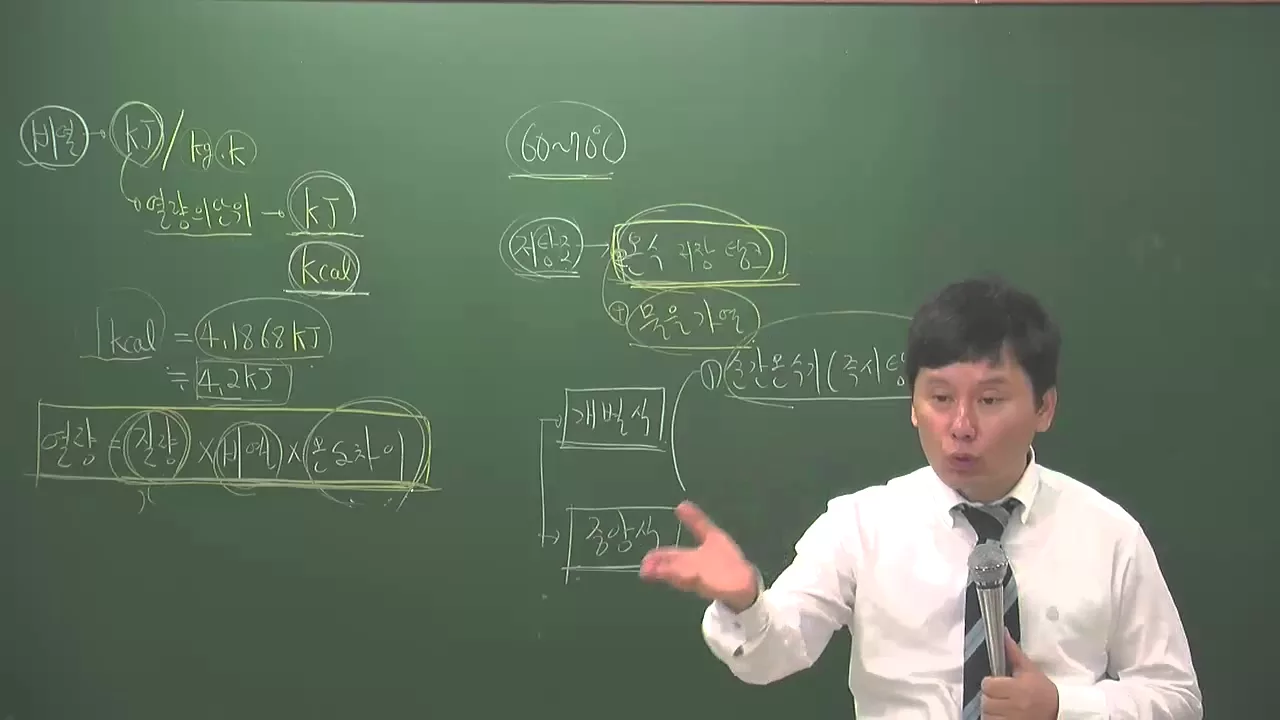 비열 → kJ/kg.k
열량의단위 → kJ
kcal
1kcal = 4.1868kJ
≒ 4.2kJ
열량 = 질량 × 비열 × 온도차이
60~70℃
저탕조 → 온수 저장 탱크
+ 물을가열
개별식
① 순간온수기(즉시탕
중앙식